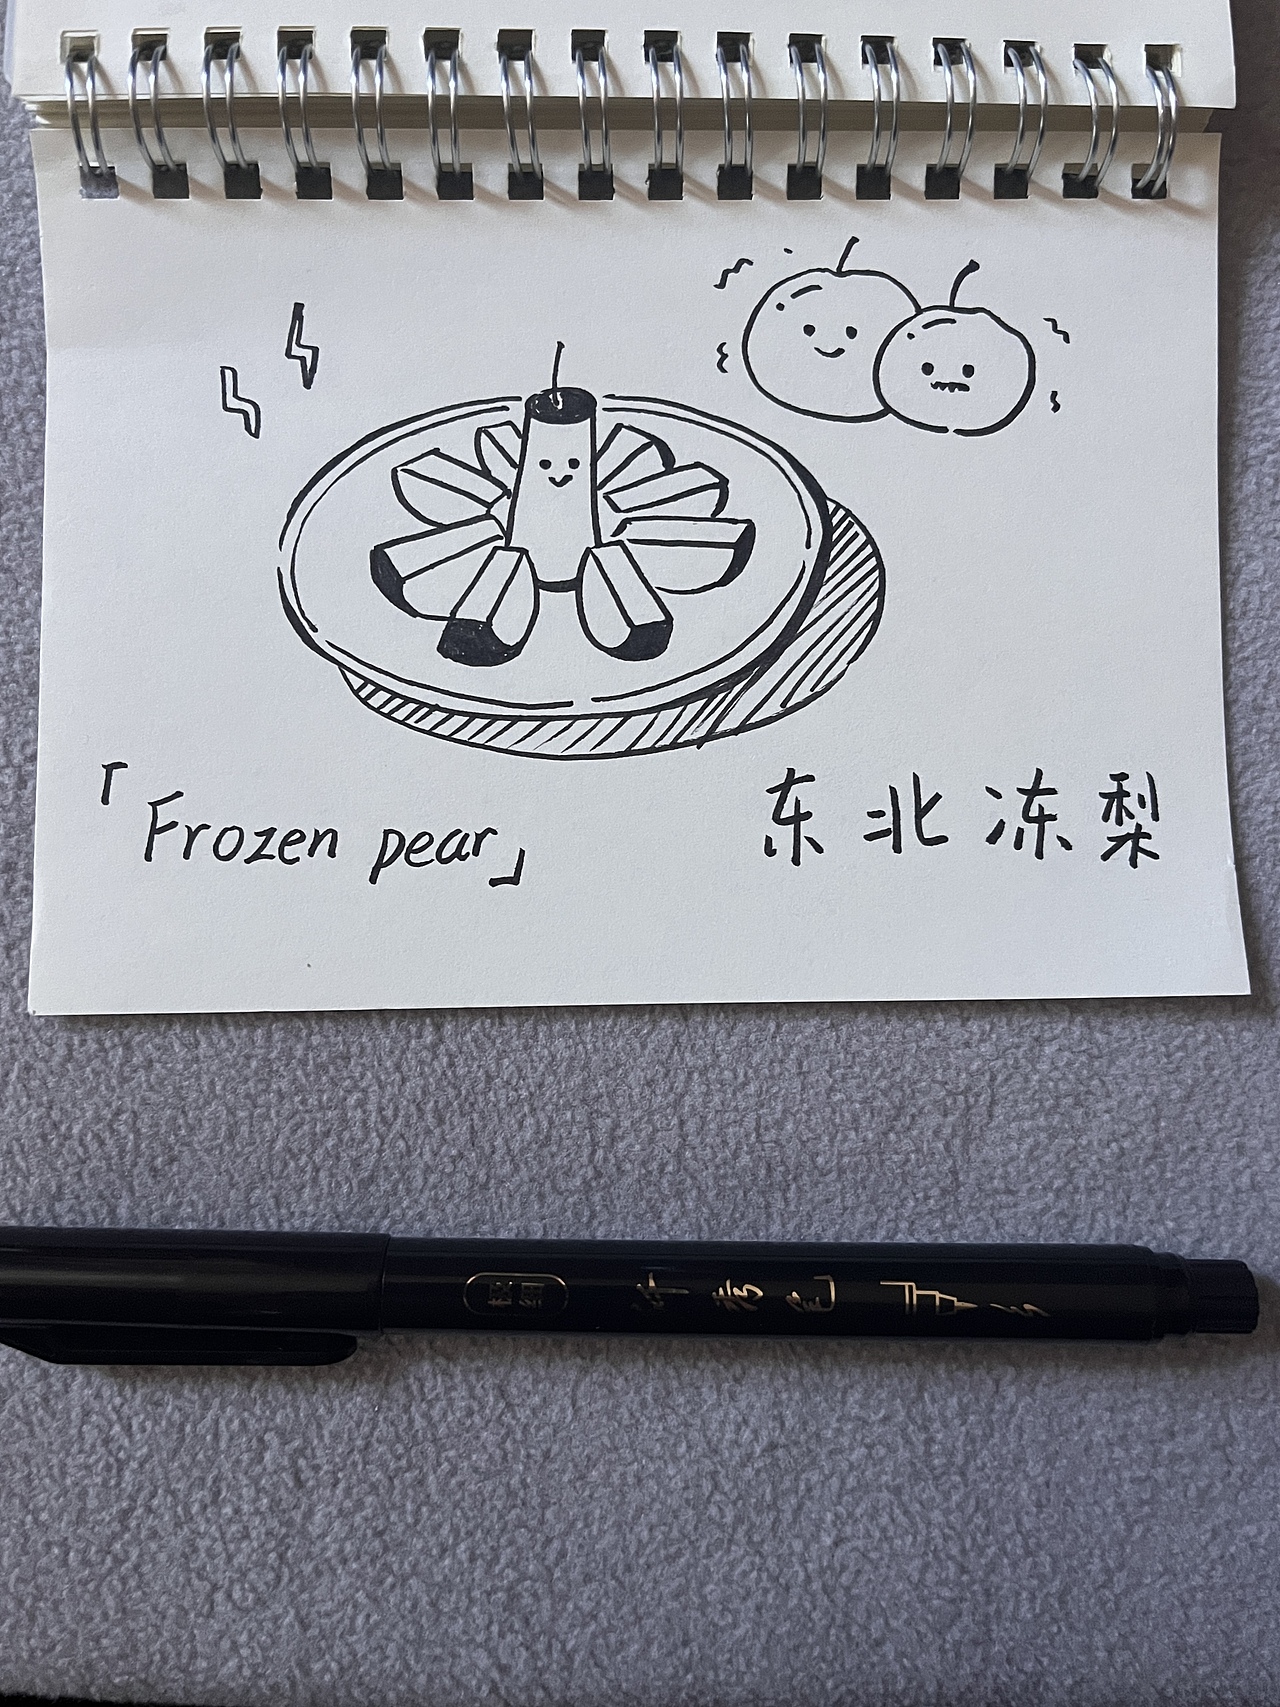 「Frozen pear」
东北冻梨
极细